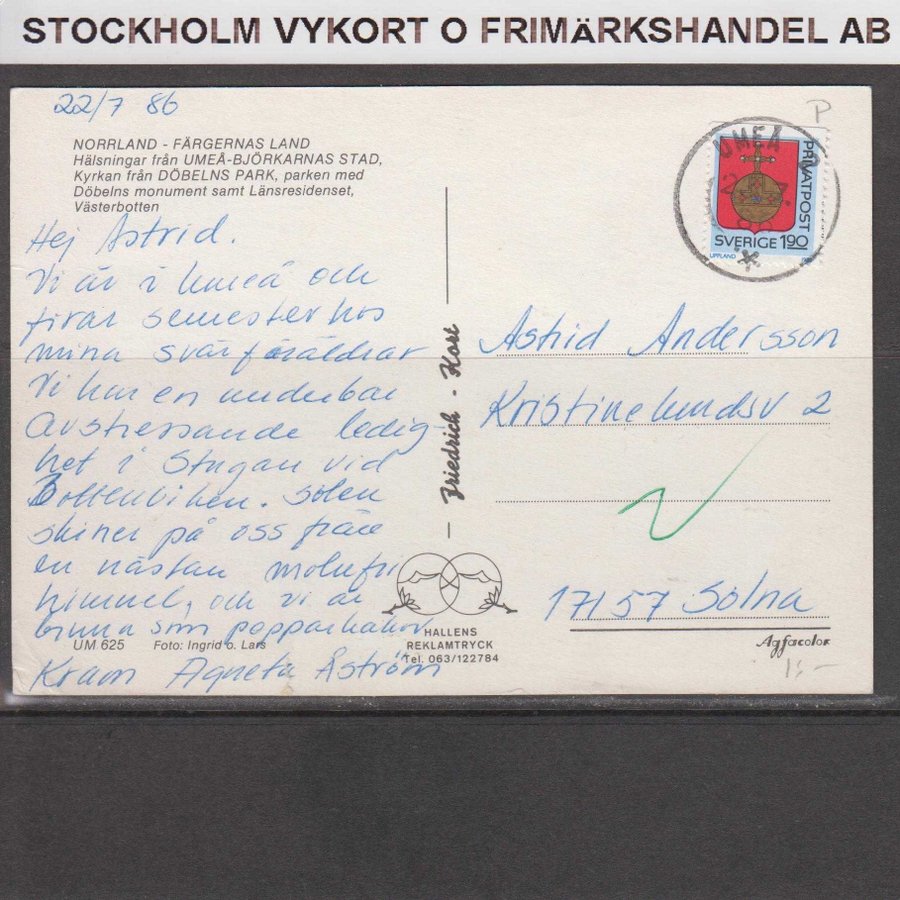 STOCKHOLM VYKORT O FRIMÄRKSHANDEL AB
22/7 86
NORRLAND - FÄRGERNAS LAND
Hälsningar från UMEÅ-BJÖRKARNAS STAD,
Kyrkan från DÖBELNS PARK, parken med
Döbelns monument samt Länsresidenset,
Västerbotten
Hej Astrid.
Vi är i Umeå och
firar semester hos
mina svärföräldrar
Vi har en underbar
avstressande ledig
het i stugan vid
Bottenviken. Solen
skiner på oss från
en nästan molnfri
himmel, och vi är
bruna som pepparkakor
UM 625 Foto: Ingrid o. Lars
Kram Agneta Åström
Friedrich - Kort
HALLENS
REKLAMTRYCK
Tel. 063/122784
P
UMEÅ
PRIVATPOST
SVERIGE 1.90
UPPLAND
Astrid Andersson
Kristinelundsv 2
17157 Solna
Agfacolor
1:-